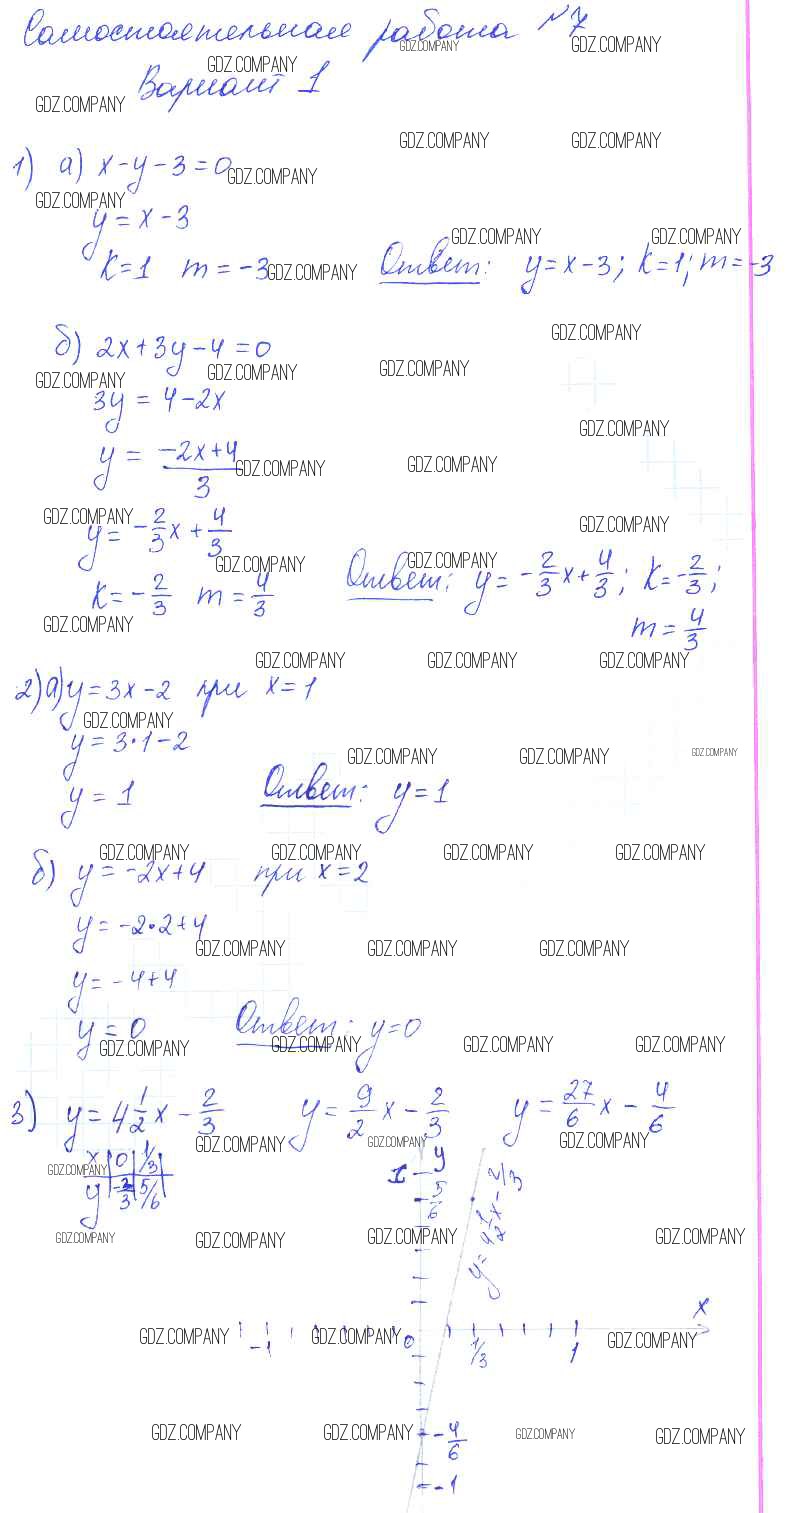 Самостоятельная работа №7
Вариант 1
1) а) x - y - 3 = 0
y = x - 3
k = 1 m = -3 Ответ: y = x - 3; k = 1; m = -3
б) 2x + 3y - 4 = 0
3y = 4 - 2x
y = (-2x + 4)/3
y = -2/3 x + 4/3
k = -2/3 m = 4/3 Ответ: y = -2/3 x + 4/3; k = -2/3;
m = 4/3
2) а) y = 3x - 2 при x = 1
y = 3·1 - 2
y = 1 Ответ: y = 1
б) y = -2x + 4 при x = 2
y = -2·2 + 4
y = -4 + 4
y = 0 Ответ: y = 0
3) y = 4 1/2 x - 2/3 y = 9/2 x - 2/3 y = 27/6 x - 4/6
x | 0 | 1/3
y | -2/3 | 5/6
y
1
5/6
y = 4 1/2 x - 2/3
x
-1 0 1/3 1
-4/6
-1
GDZ.COMPANY